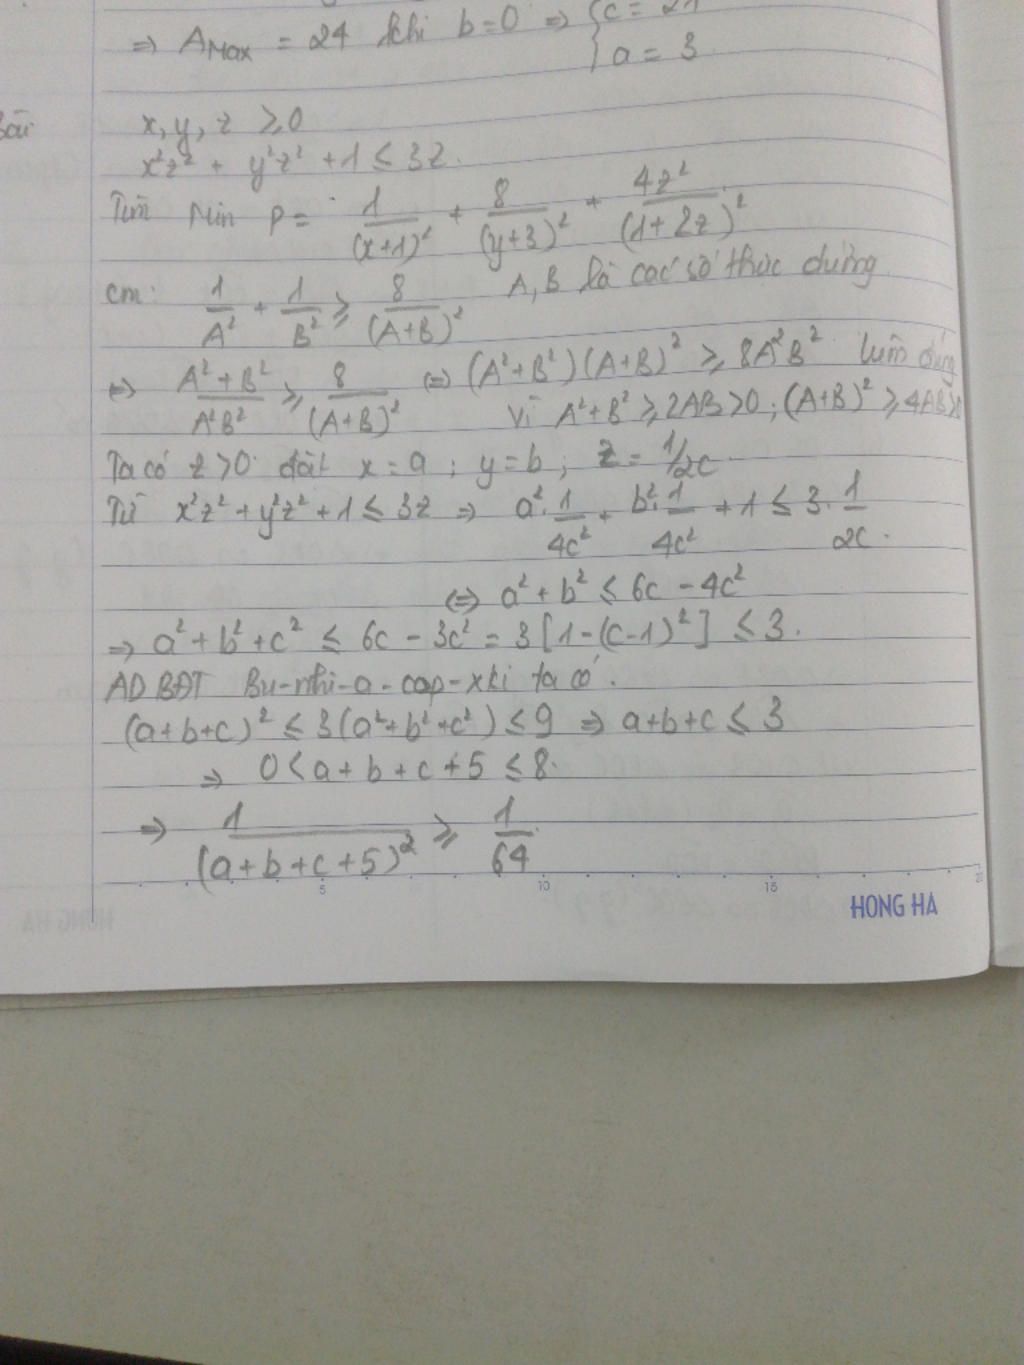 ⇒ A_Max = 24 khi b=0 ⇒ { c = 21
a = 3
Bài x, y, z ≥ 0
x²z² + y²z² + 1 ≤ 3z.
Tìm Min P = 1/(x+1)² + 8/(y+3)² + 4z²/(1+2z)²
cm: 1/A² + 1/B² ≥ 8/(A+B)² A, B là các số thực dương
⇔ (A²+B²)/(A²B²) ≥ 8/(A+B)² ⇔ (A²+B²)(A+B)² ≥ 8A²B² luôn đúng
Vì A²+B² ≥ 2AB > 0 ; (A+B)² ≥ 4AB > 0
Ta có z > 0 đặt x = a ; y = b ; z = 1/2c
Từ x²z² + y²z² + 1 ≤ 3z ⇒ a²·1/4c² + b²·1/4c² + 1 ≤ 3·1/2c.
⇔ a² + b² ≤ 6c − 4c²
⇒ a² + b² + c² ≤ 6c − 3c² = 3[1−(c−1)²] ≤ 3.
AD BĐT Bu-nhi-a-cop-xki ta có.
(a+b+c)² ≤ 3(a²+b²+c²) ≤ 9 ⇒ a+b+c ≤ 3
⇒ 0 < a+b+c+5 ≤ 8.
⇒ 1/(a+b+c+5)² ≥ 1/64.
5 10 15 20
HONG HA